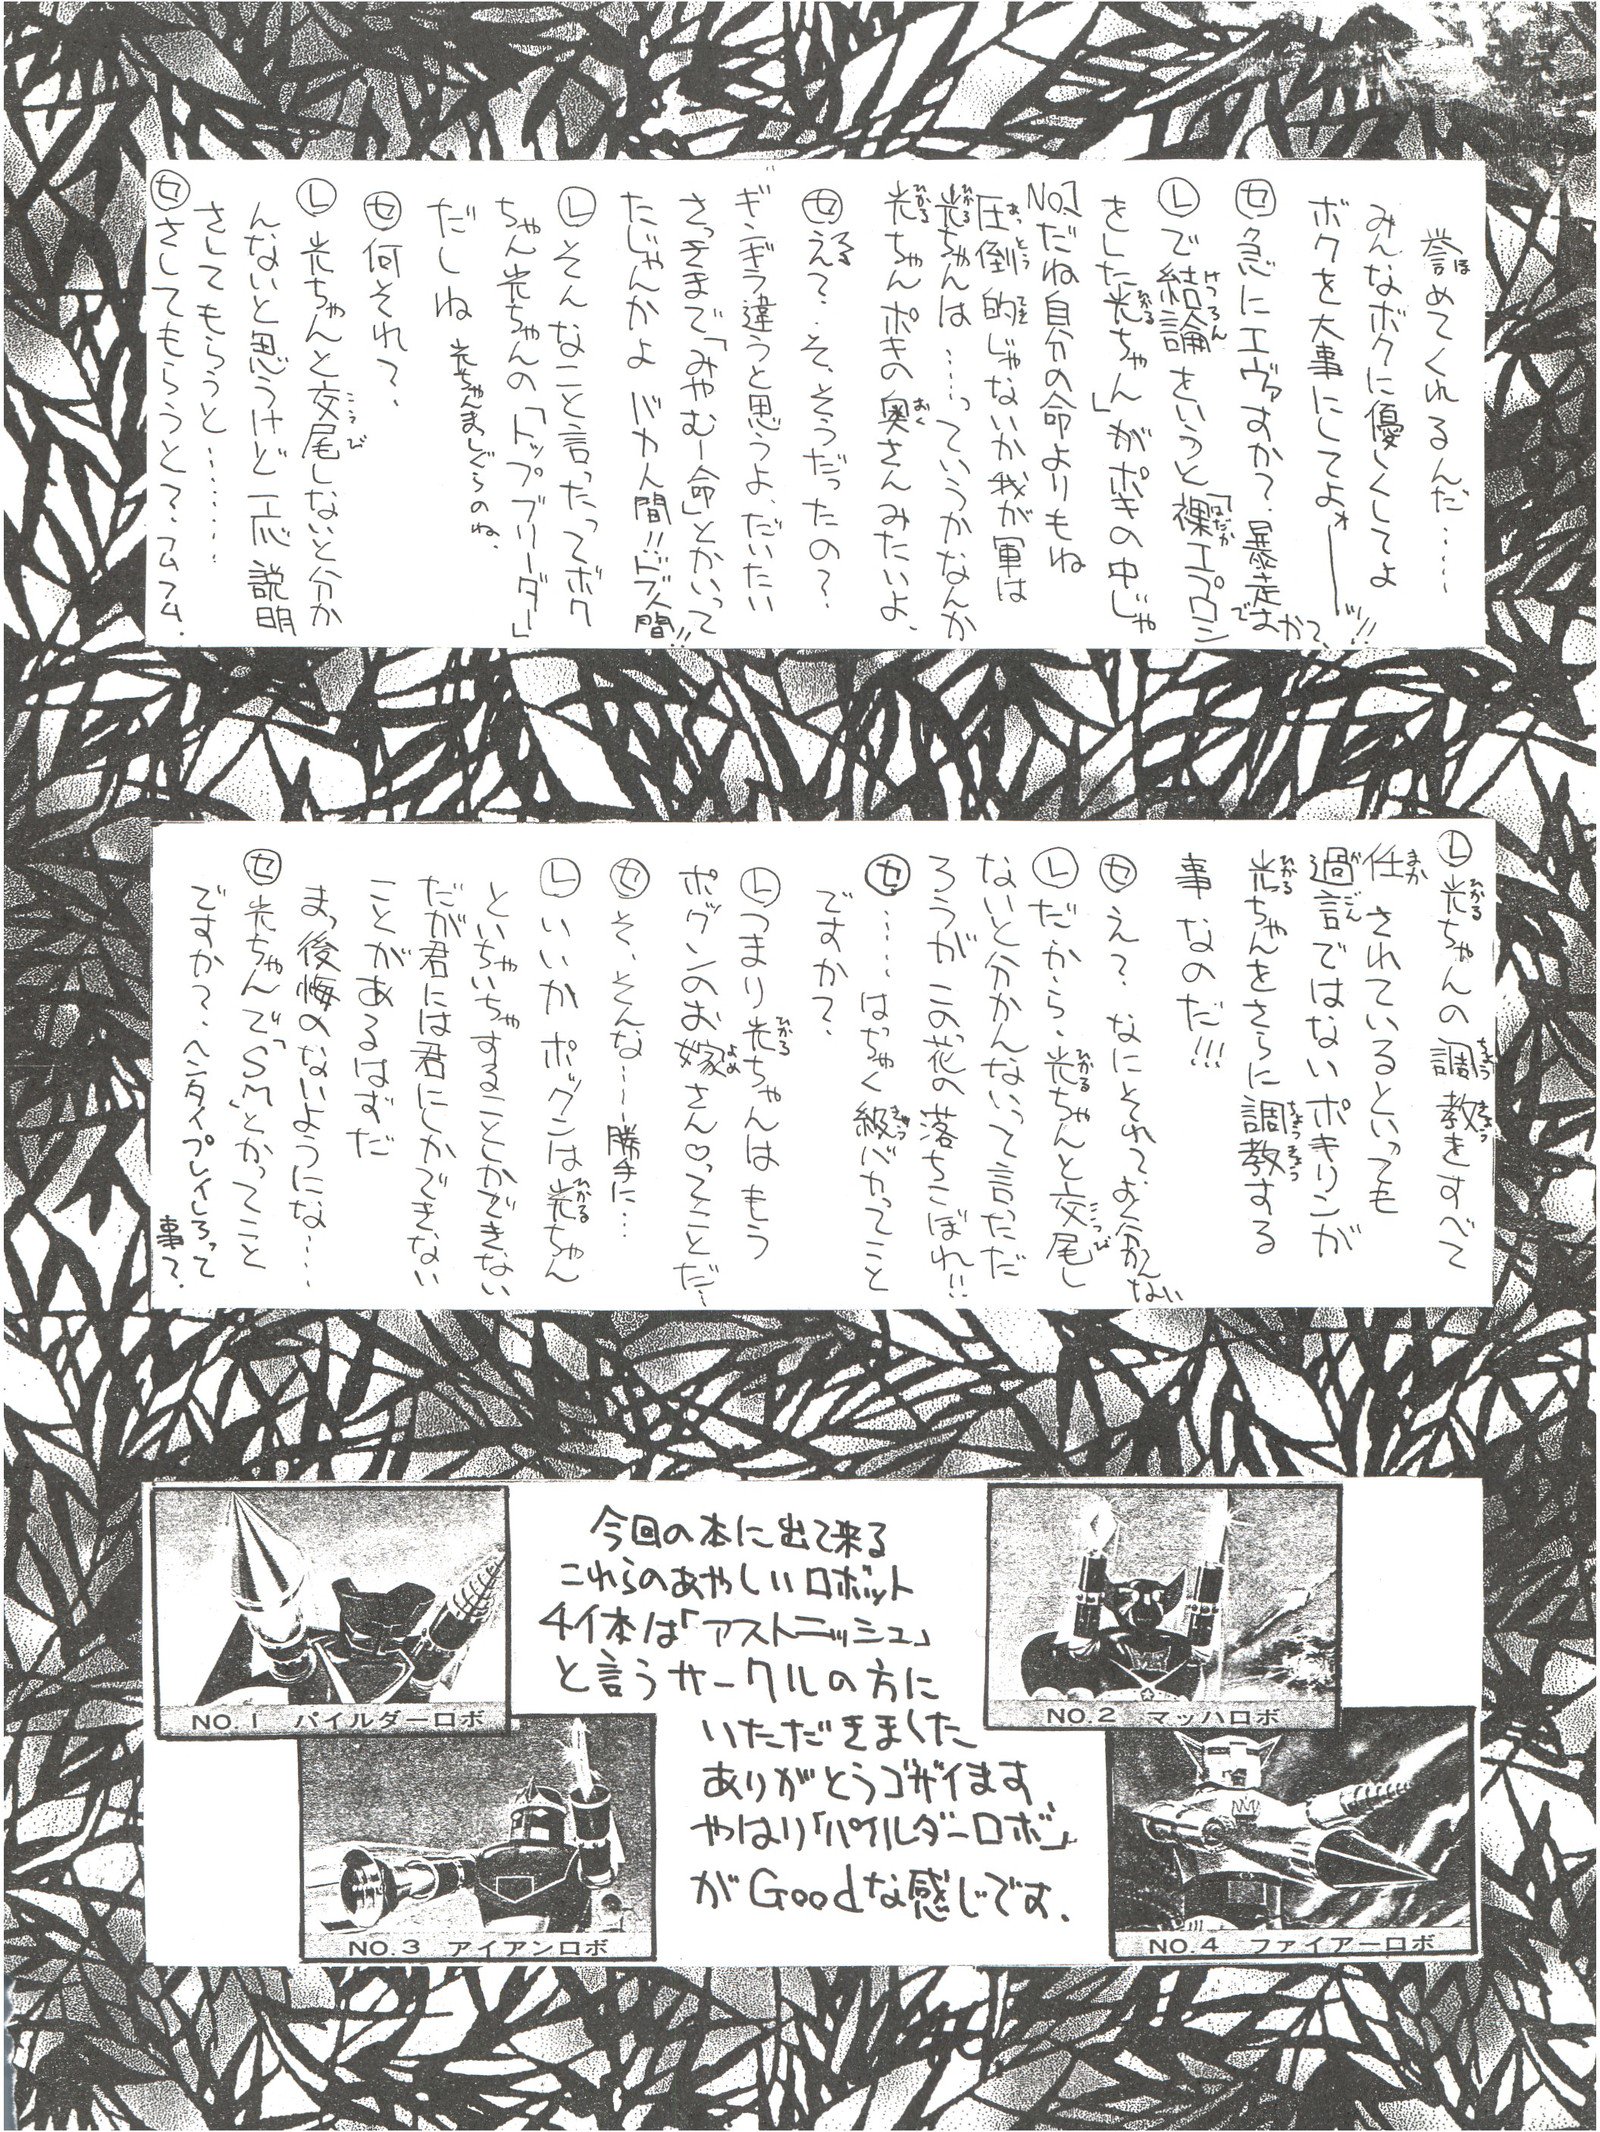 誉めてくれるんだ……
みんなボクに優しくしてよ
ボクを大事にしてよォ――ッ!!
セ 急にエヴァすか?暴走すか?
レ で結論をいうと「裸エプロン
をした光ちゃん」がポキの中じゃ
No.1だね自分の命よりもね
圧倒的じゃないか我が軍は
光ちゃんは……っていうかなんか
光ちゃんポキの奥さんみたいよ、
セ え?、そ、そうだったの?、
ギンギラ違うと思うよ、だいたい
さっきまで「みやむー命」とかいって
たじゃんかよ バカ人間!!ドブ人間!!
レ そんなこと言ったってボク
ちゃん光ちゃんの「トップブリーダー」
だしね 光ちゃんましぐらのね、
セ 何それ?、
レ 光ちゃんと交尾しないと分か
んないと思うけど一応説明
さしてもらうと………
セ さしてもらうと?、フムフム、
レ 光ちゃんの調教をすべて
任されているといっても
過言ではないポキリンが
光ちゃんをさらに調教する
事なのだ!!!
セ え?、なにそれ?、よく分かんない
レ だから、光ちゃんと交尾し
ないと分かんないって言っただ
ろうがこの花の落ちこぼれ!!
セ ……はっちゃく級バカってこと
ですか?、
レ つまり光ちゃんはもう
ポグンのお嫁さん♡ってことだ…
セ そ、そんな……勝手に…
レ いいかポグンは光ちゃん
といちゃいちゃすることしかできない
だが君には君にしかできない
ことがあるはずだ
まっ後悔のないようにな……
セ 光ちゃんで「SM」とかってこと
ですか?、ヘンタイプレイしろって
事?、
今回の本に出て来る
これらのあやしいロボット
4体は「アストニッシュ」
と言うサークルの方に
いただきました
ありがとうゴザイます、
やはり「パイルダーロボ」
がGoodな感じです、
NO.1 パイルダーロボ
NO.2 マッハロボ
NO.3 アイアンロボ
NO.4 ファイアーロボ